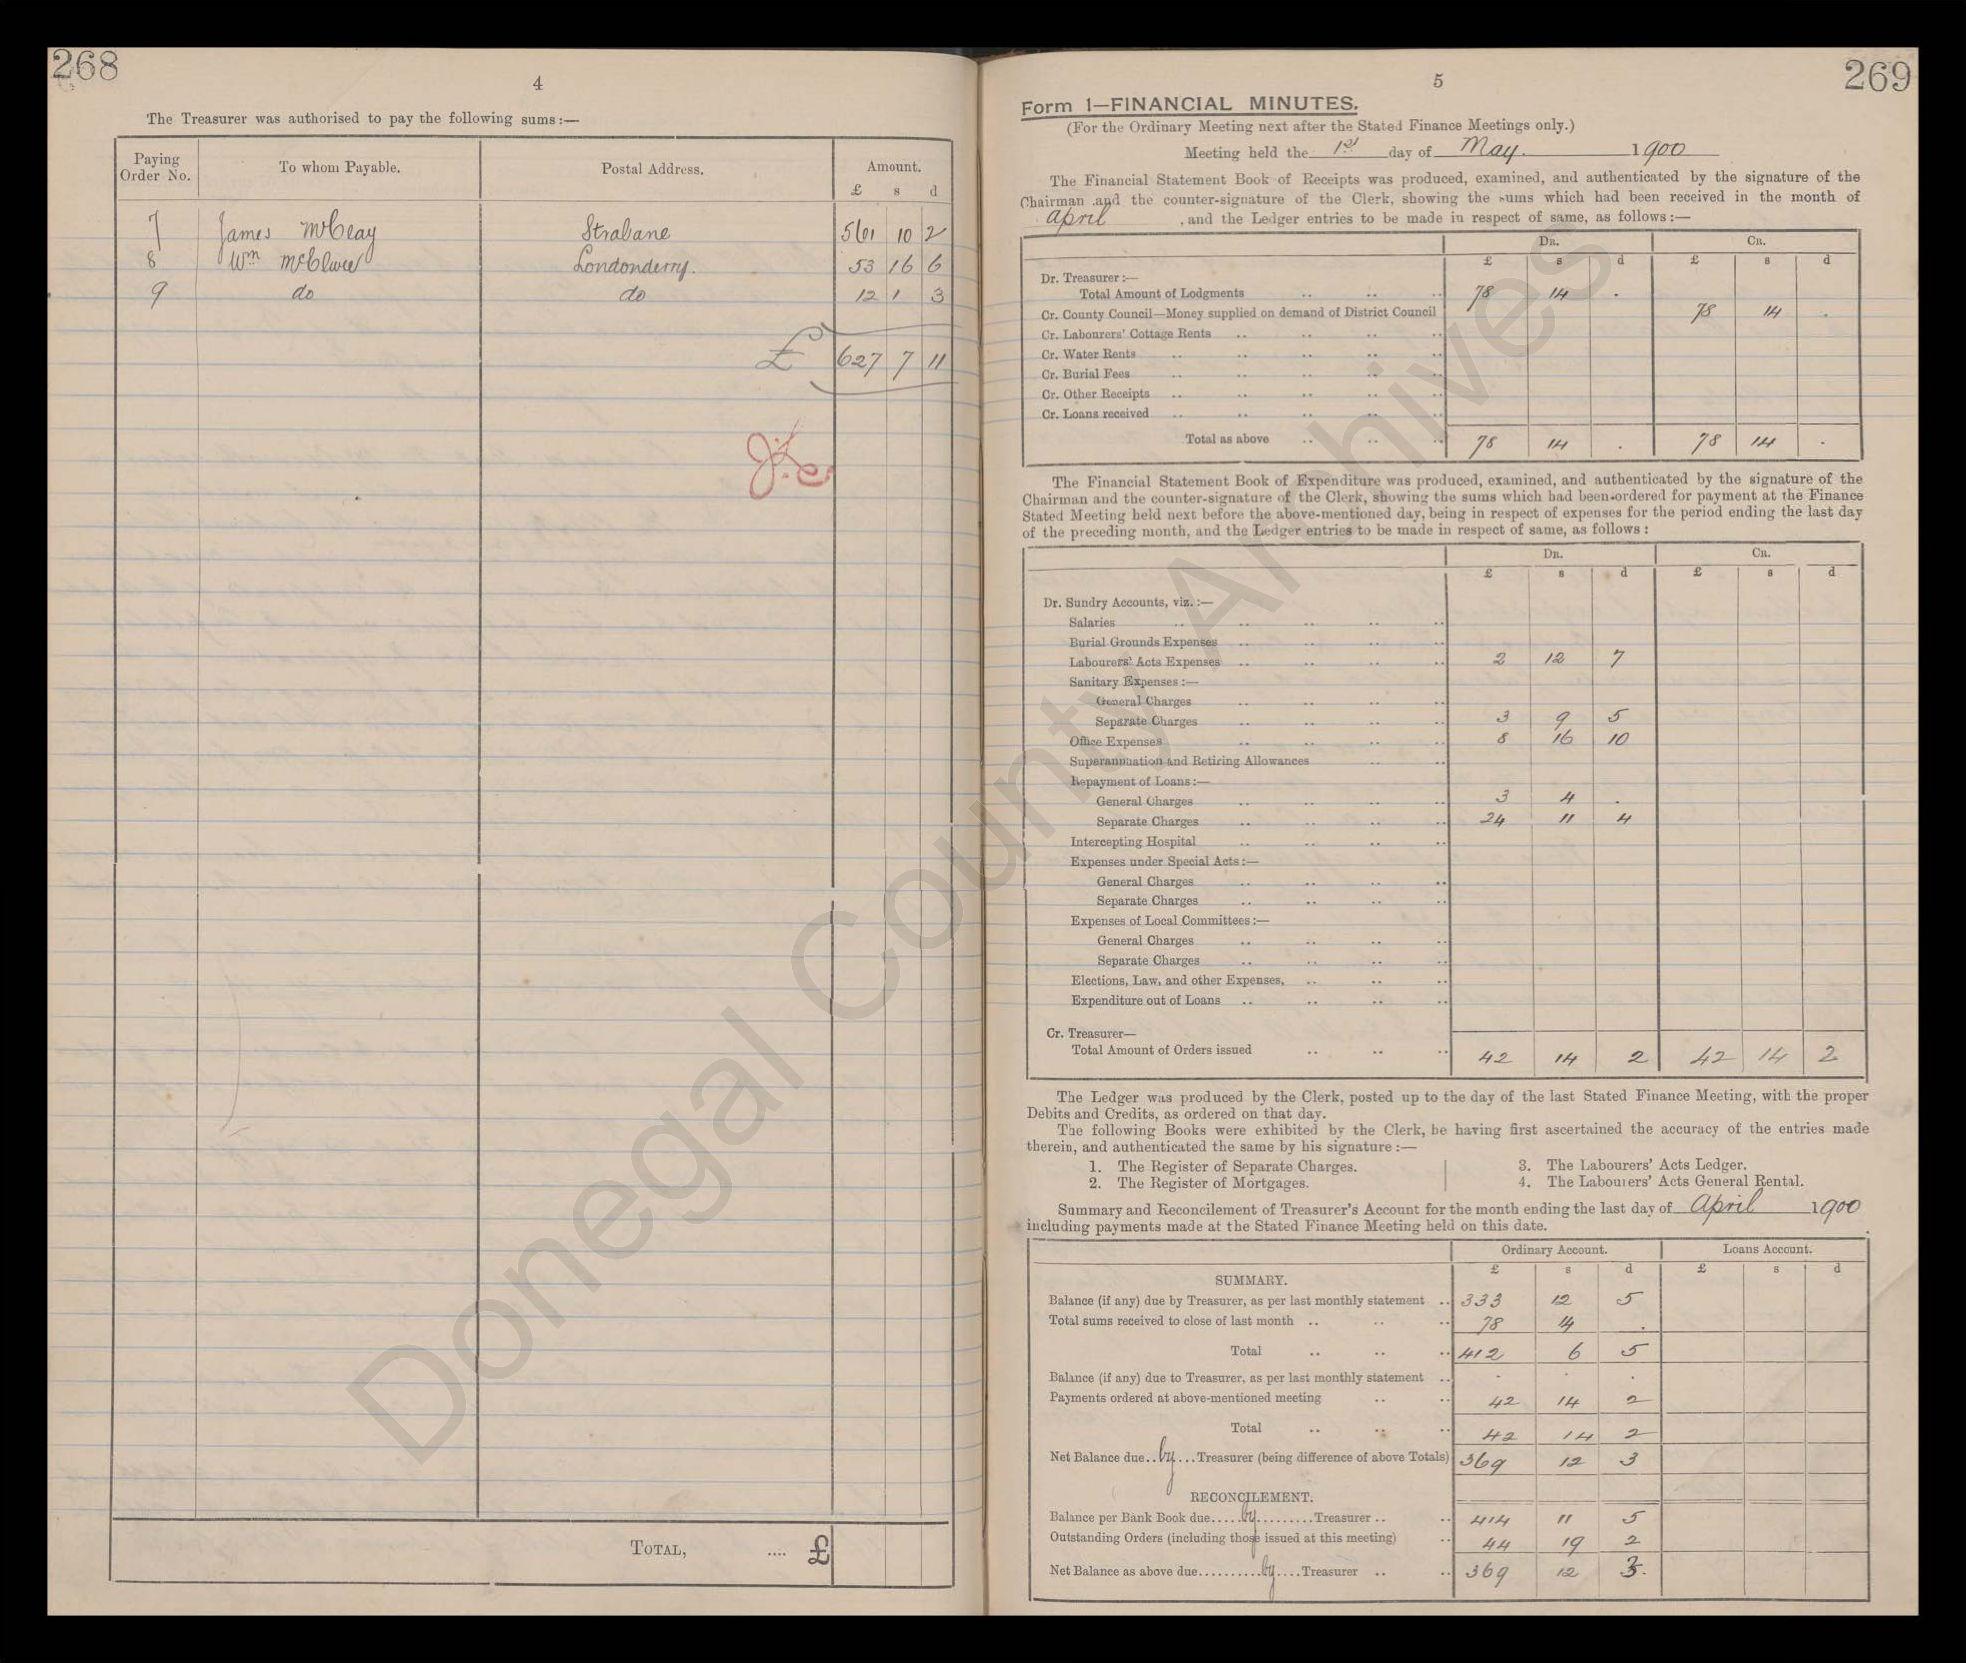 268
4
The Treasurer was authorised to pay the following sums:—
Paying Order No. To whom Payable. Postal Address. Amount.
£ s d
7 James McCray Strabane 561 10 2
8 Wm McClure Londonderry. 53 16 6
9 do do 12 1 3
£ 627 7 11
TOTAL, .... £
269
5
Form 1—FINANCIAL MINUTES.
(For the Ordinary Meeting next after the Stated Finance Meetings only.)
Meeting held the 1st day of May. 1900
The Financial Statement Book of Receipts was produced, examined, and authenticated by the signature of the
Chairman and the counter-signature of the Clerk, showing the sums which had been received in the month of
April, and the Ledger entries to be made in respect of same, as follows:—
DR. CR.
£ s d £ s d
Dr. Treasurer:—
Total Amount of Lodgments .. .. .. 78 14 .
Cr. County Council—Money supplied on demand of District Council 78 14 .
Cr. Labourers' Cottage Rents .. .. .. ..
Cr. Water Rents .. .. .. .. ..
Cr. Burial Fees .. .. .. .. ..
Cr. Other Receipts .. .. .. .. ..
Cr. Loans received .. .. .. .. ..
Total as above .. .. .. 78 14 . 78 14 .
The Financial Statement Book of Expenditure was produced, examined, and authenticated by the signature of the
Chairman and the counter-signature of the Clerk, showing the sums which had been ordered for payment at the Finance
Stated Meeting held next before the above-mentioned day, being in respect of expenses for the period ending the last day
of the preceding month, and the Ledger entries to be made in respect of same, as follows:
DR. CR.
£ s d £ s d
Dr. Sundry Accounts, viz.:—
Salaries .. .. .. .. ..
Burial Grounds Expenses .. .. .. ..
Labourers' Acts Expenses .. .. .. .. 2 12 7
Sanitary Expenses:—
General Charges .. .. .. ..
Separate Charges .. .. .. .. 3 9 5
Office Expenses .. .. .. .. 8 16 10
Superannuation and Retiring Allowances .. ..
Repayment of Loans:—
General Charges .. .. .. .. 3 4 .
Separate Charges .. .. .. .. 24 11 4
Intercepting Hospital .. .. .. ..
Expenses under Special Acts:—
General Charges .. .. .. ..
Separate Charges .. .. .. ..
Expenses of Local Committees:—
General Charges .. .. .. ..
Separate Charges .. .. .. ..
Elections, Law, and other Expenses, .. .. ..
Expenditure out of Loans .. .. .. ..
Cr. Treasurer—
Total Amount of Orders issued .. .. .. 42 14 2 42 14 2
The Ledger was produced by the Clerk, posted up to the day of the last Stated Finance Meeting, with the proper
Debits and Credits, as ordered on that day.
The following Books were exhibited by the Clerk, he having first ascertained the accuracy of the entries made
therein, and authenticated the same by his signature:—
1. The Register of Separate Charges. 3. The Labourers' Acts Ledger.
2. The Register of Mortgages. 4. The Labourers' Acts General Rental.
Summary and Reconcilement of Treasurer's Account for the month ending the last day of April 1900
including payments made at the Stated Finance Meeting held on this date.
Ordinary Account. Loans Account.
£ s d £ s d
SUMMARY.
Balance (if any) due by Treasurer, as per last monthly statement .. 333 12 5
Total sums received to close of last month .. .. .. 78 14 .
Total .. .. .. 412 6 5
Balance (if any) due to Treasurer, as per last monthly statement .. . . .
Payments ordered at above-mentioned meeting .. .. 42 14 2
Total .. .. .. 42 14 2
Net Balance due..by...Treasurer (being difference of above Totals) 369 12 3
RECONCILEMENT.
Balance per Bank Book due.....by.........Treasurer .. .. 414 11 5
Outstanding Orders (including those issued at this meeting) .. 44 19 2
Net Balance as above due..........by....Treasurer .. .. 369 12 3.
Donegal County Archives